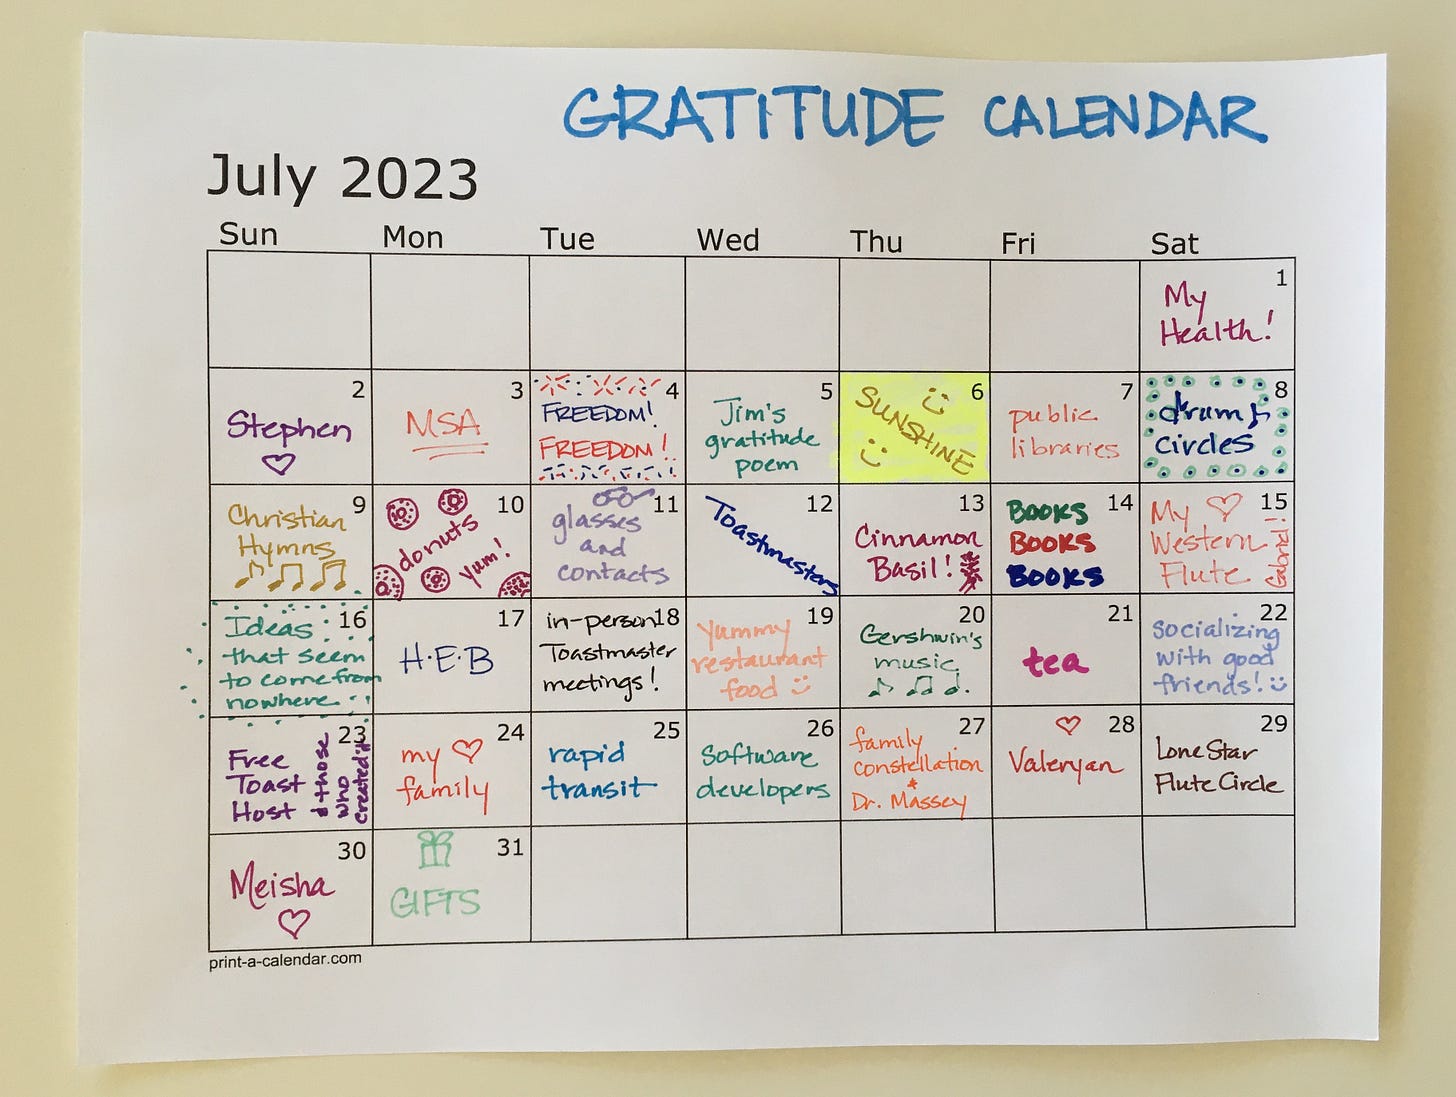 GRATITUDE CALENDAR
July 2023
Sun Mon Tue Wed Thu Fri Sat
1
My
Health!
2
Stephen
3
MSA
4
FREEDOM!
FREEDOM!
5
Jim's
gratitude
poem
6
SUNSHINE
7
public
libraries
8
drum
circles
9
Christian
Hymns
10
donuts
yum!
11
glasses
and
contacts
12
Toastmasters
13
Cinnamon
Basil!
14
BOOKS
BOOKS
BOOKS
15
My
Western
Flute
Gabriel!
16
Ideas
that seem
to come from
nowhere
17
H·E·B
18
in-person
Toastmaster
meetings!
19
Yummy
restaurant
food
20
Gershwin's
music
21
tea
22
socializing
with good
friends!
23
Free
Toast
Host
& those
who
created it
24
my
family
25
rapid
transit
26
Software
developers
27
family
constellation
+
Dr. Massey
28
Valeryan
29
Lone Star
Flute Circle
30
Meisha
31
GIFTS
print-a-calendar.com